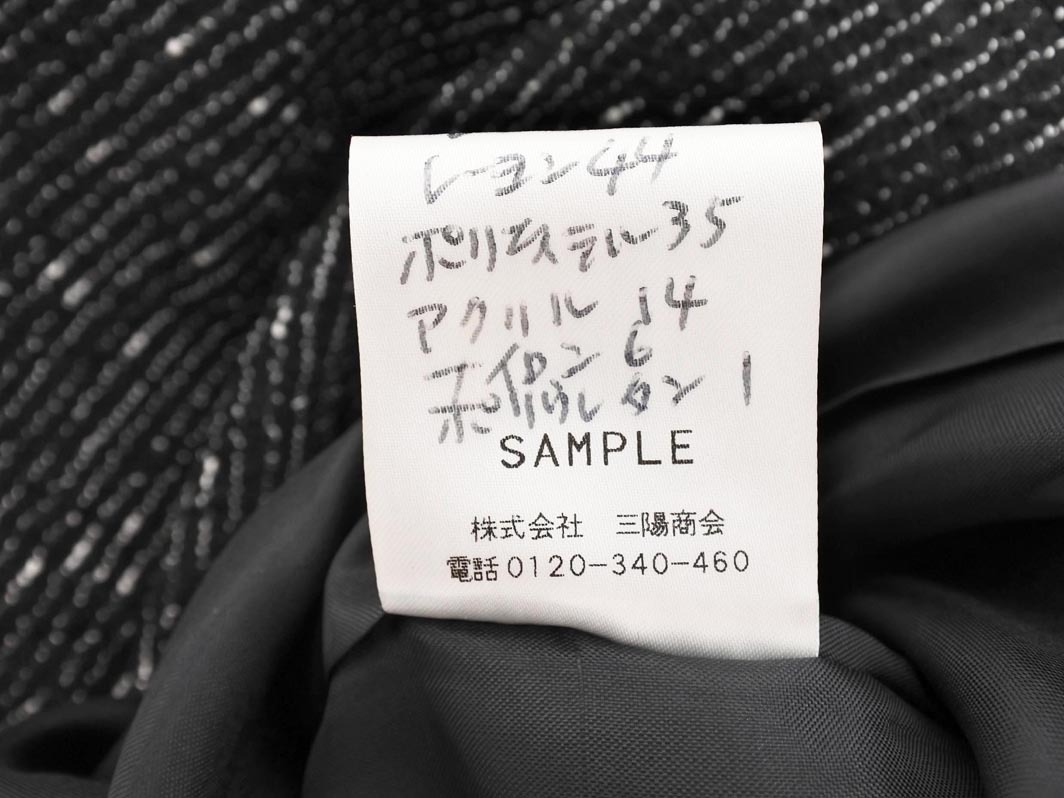 レーヨン44
ポリエステル35
アクリル 14
ナイロン 6
ポリウレタン 1
SAMPLE
株式会社 三陽商会
電話0120-340-460